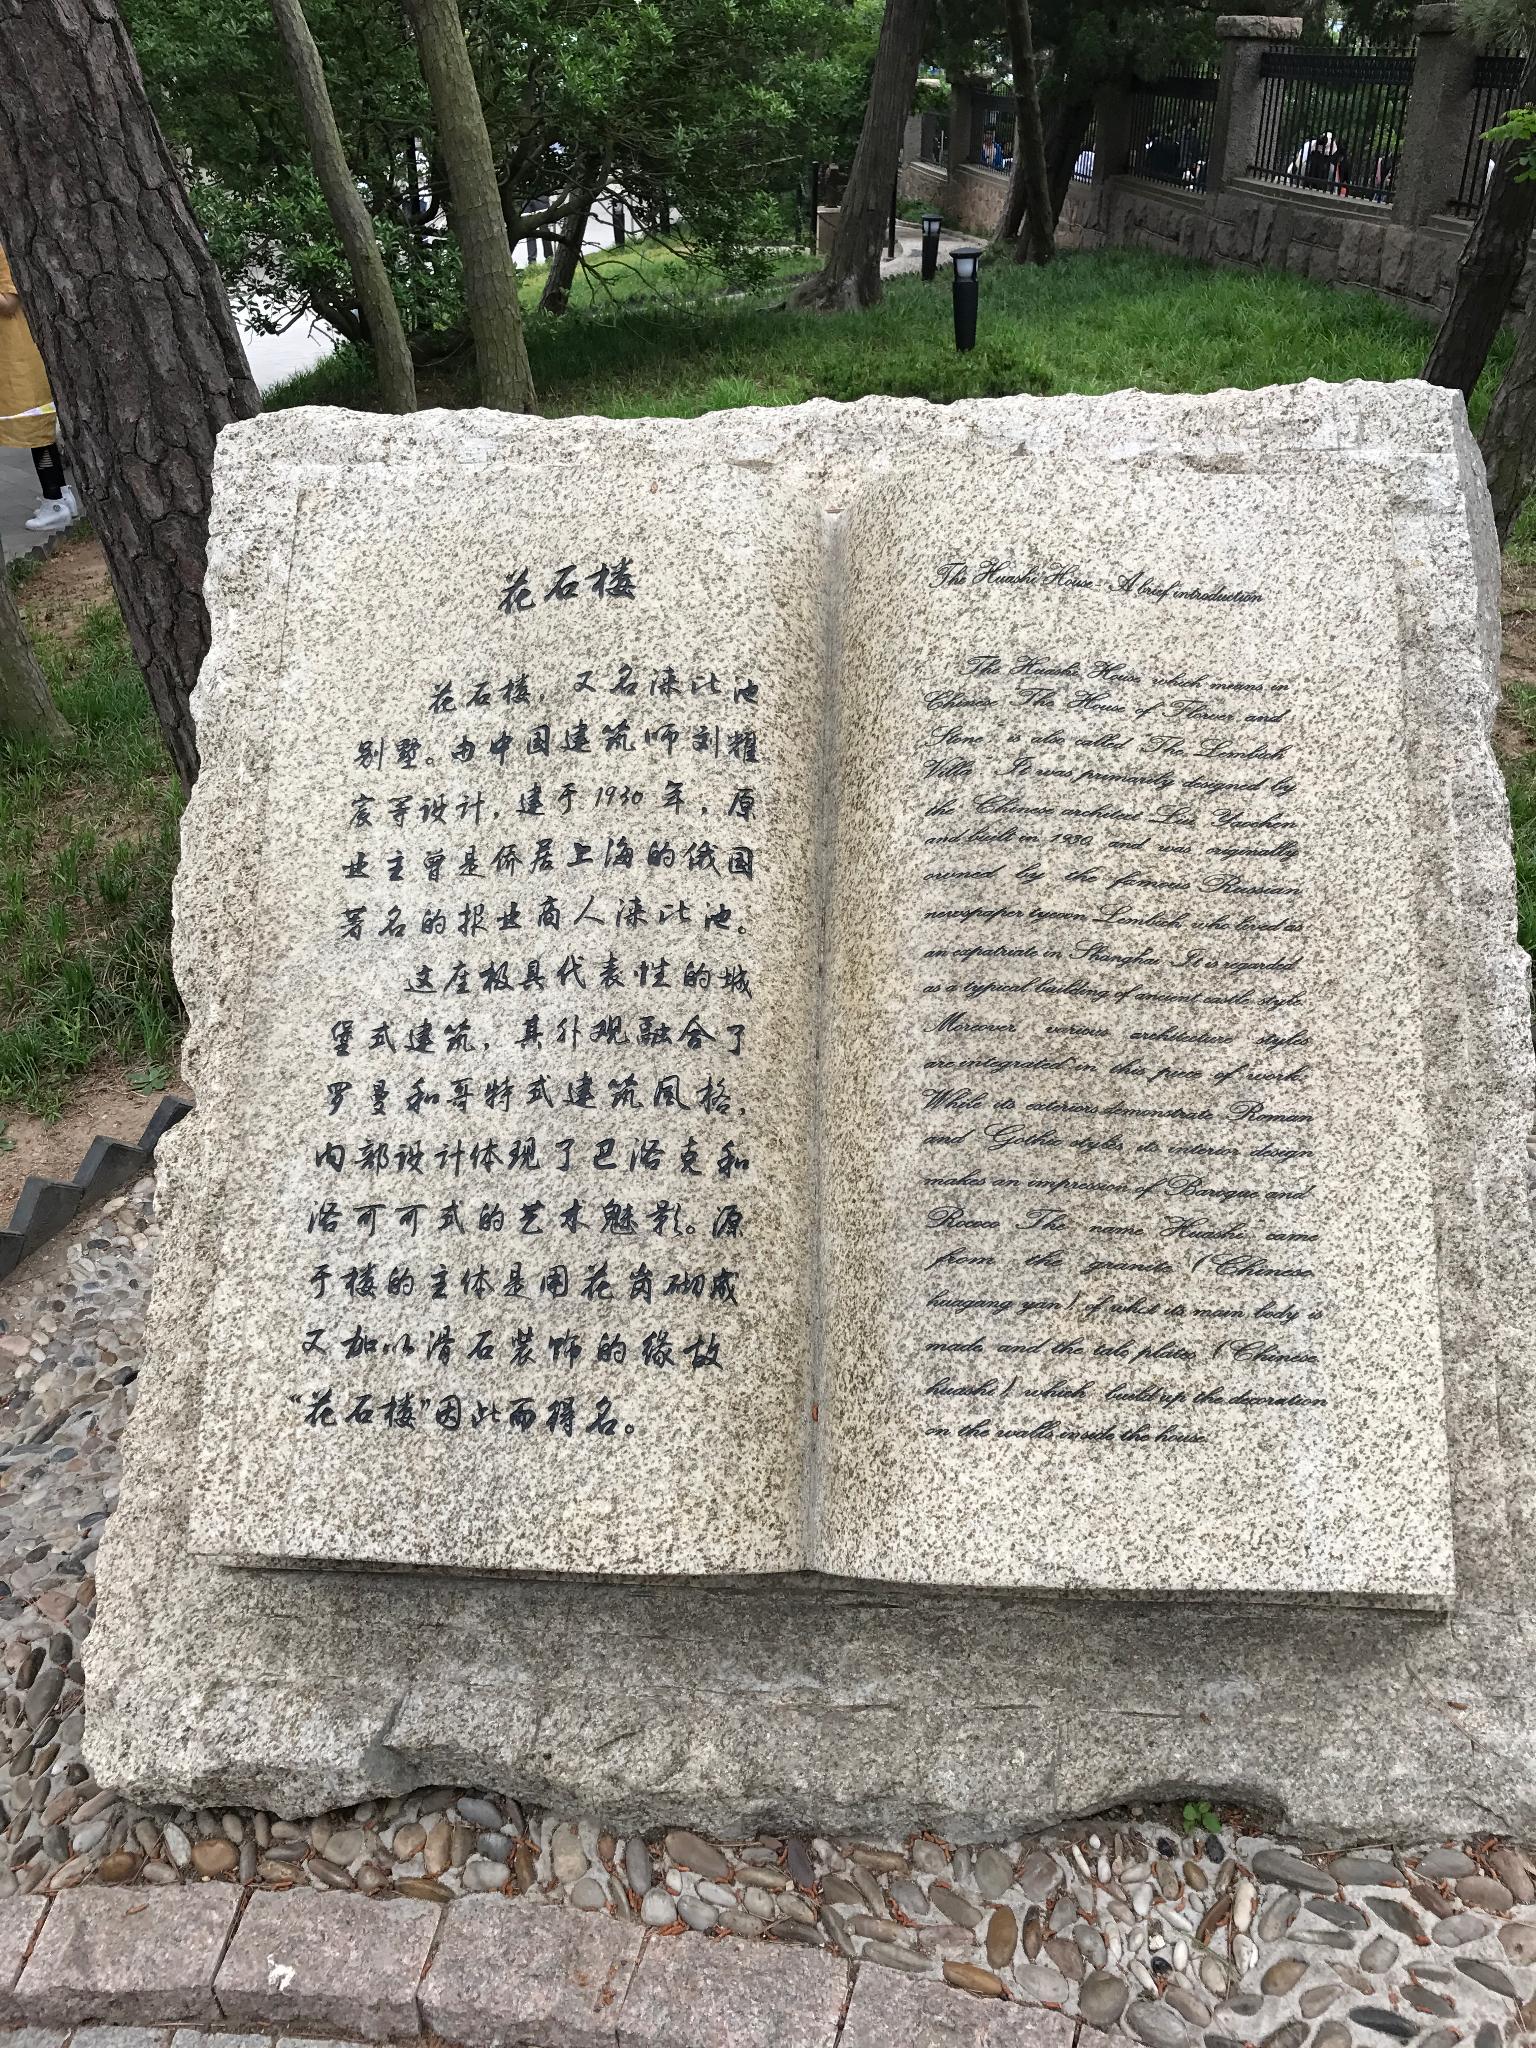 花石楼
花石楼，又名涞比池
别墅。由中国建筑师刘耀
宸等设计，建于1930年，原
业主曾是侨居上海的俄国
著名的报业商人涞比池。
这座极具代表性的城
堡式建筑，其外观融合了
罗曼和哥特式建筑风格，
内部设计体现了巴洛克和
洛可可式的艺术魅影。源
于楼的主体是用花岗砌成
又加以滑石装饰的缘故
“花石楼”因此而得名。
The Huashi House - A brief introduction
The Huashi House, which means in
Chinese "The House of Flower and
Stone" is also called "The Lembich
Villa". It was primarily designed by
the Chinese architect Liu Yaochen
and built in 1930, and was originally
owned by the famous Russian
newspaper tycoon Lembich who lived as
an expatriate in Shanghai. It is regarded
as a typical building of ancient castle style.
Moreover various architecture styles
are integrated in this piece of work.
While its exteriors demonstrate Roman
and Gothic styles, its interior design
makes an impression of Baroque and
Rococo. The name Huashi came
from the granite (Chinese
huagang yan) of which its main body is
made, and the talc plates (Chinese
huashi) which build up the decoration
on the walls inside the house.